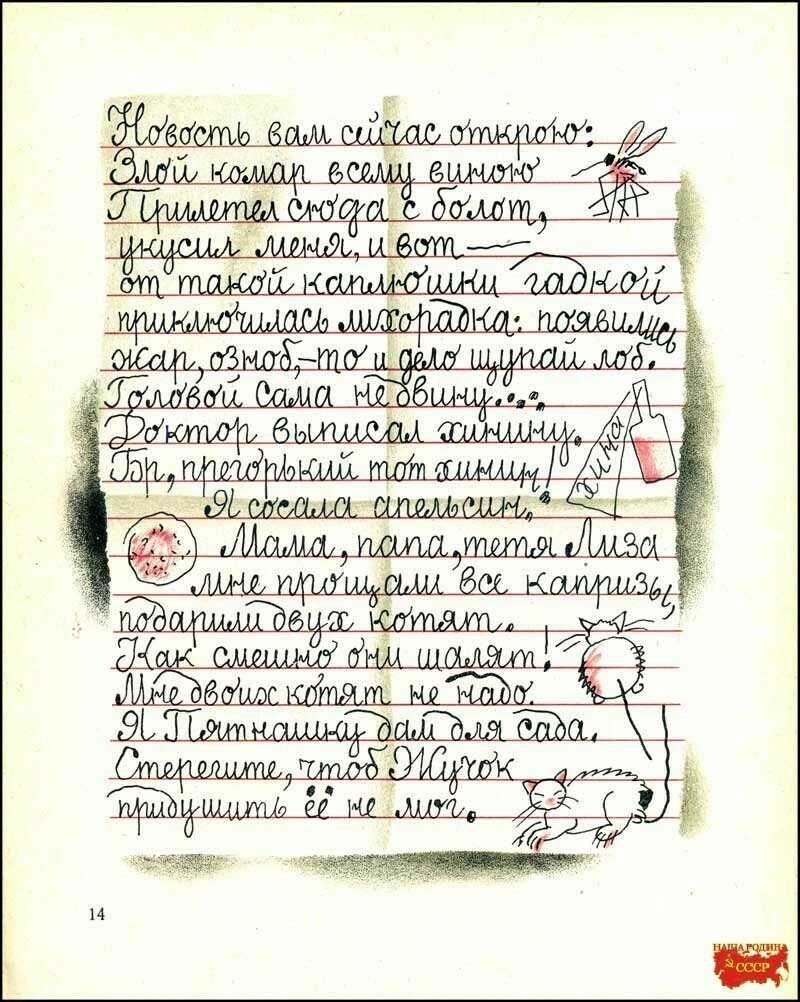 Новость вам сейчас открою:
Злой комар всему виною
Прилетел сюда с болот,
укусил меня, и вот —
от такой каплюшки гадкой
приключилась лихорадка: появились
жар, озноб, – то и дело щупай лоб.
Головой сама не двину....
Доктор выписал хинину.
Бр, прегорький тот хинин!
хина
Я сосала апельсин.
Мама, папа, тетя Лиза
мне прощали все капризы,
подарили двух котят.
Как смешно они шалят!
Мне двоих котят не надо.
Я Пятнашку дам для сада.
Стерегите, чтоб Жучок
придушить её не мог.
14
НАША РОДИНА
СССР